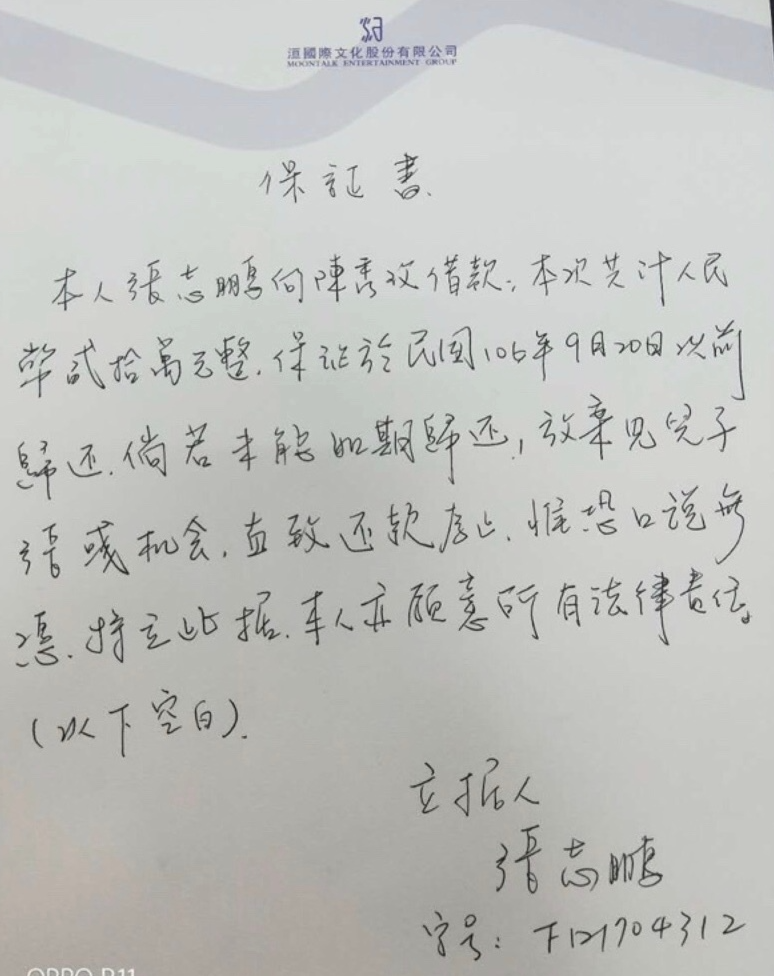 洹國際文化股份有限公司
MOONTALK ENTERTAINMENT GROUP
保証書.
本人張志鵬向陳秀玫借款,本次共計人民
幣貳拾萬元整.保証於民國106年9月20日以前
歸还.倘若未能如期歸还,放棄見兒子
張彧机会,直致还款為止.惟恐口說無
憑.特立此据.本人亦願意所有法律責任。
(以下空白).
立据人
張志鵬
字号: F121704312
OPPO R11